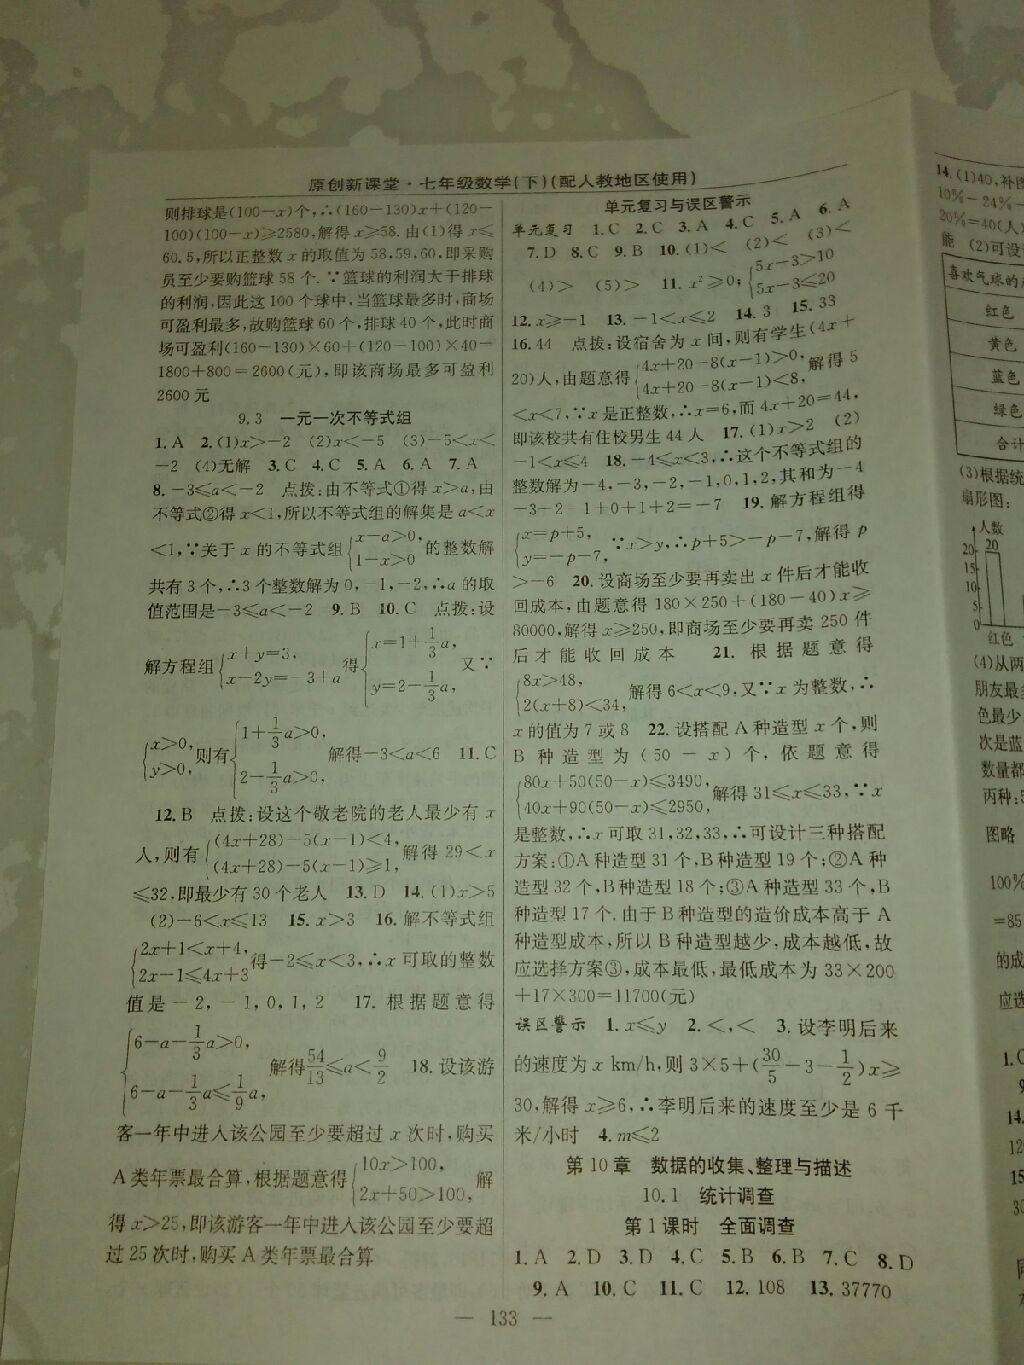 原创新课堂·七年级数学(下)(配人教地区使用)
则排球是(100-x)个,∴(160-130)x+(120-
100)(100-x)≥2580,解得x≥58.由(1)得x≤
60.5,所以正整数x的取值为58,59,60,即采购
员至少要购篮球58个.∵篮球的利润大于排球
的利润,因此这100个球中,当篮球最多时,商场
可盈利最多,故购篮球60个,排球40个,此时商
场可盈利(160-130)×60+(120-100)×40=
1800+800=2600(元),即该商场最多可盈利
2600元
9.3 一元一次不等式组
1.A 2.(1)x>-2 (2)x<-5 (3)-5<x<
-2 (4)无解 3.C 4.C 5.A 6.A 7.A
8.-3≤a<-2 点拨:由不等式①得x>a,由
不等式②得x<1,所以不等式组的解集是a<x
<1,∵关于x的不等式组{x-a>0, 1-x>0 的整数解
共有3个,∴3个整数解为0,-1,-2,∴a的取
值范围是-3≤a<-2 9.B 10.C 点拨:设
解方程组{x+y=3, x-2y=-3+a 得{x=1+1/3a, y=2-1/3a, 又∵
{x>0, y>0, 则有{1+1/3a>0, 2-1/3a>0, 解得-3<a<6 11.C
12.B 点拨:设这个敬老院的老人最少有x
人,则有{(4x+28)-5(x-1)<4, (4x+28)-5(x-1)≥1, 解得29<x
≤32.即最少有30个老人 13.D 14.(1)x>5
(2)-6<x≤13 15.x>3 16.解不等式组
{2x+1<x+4, 2x-1≤4x+3 得-2≤x<3,∴x可取的整数
值是-2,-1,0,1,2 17.根据题意得
{6-a-1/3a>0, 6-a-1/3a≤1/9a, 解得54/13≤a<9/2 18.设该游
客一年中进入该公园至少要超过x次时,购买
A类年票最合算,根据题意得{10x>100, 2x+50>100, 解
得x>25,即该游客一年中进入该公园至少要超
过25次时,购买A类年票最合算
单元复习与误区警示
单元复习 1.C 2.C 3.A 4.C 5.A 6.A
7.D 8.C 9.B 10.(1)< (2)< (3)<
(4)> (5)> 11.x²≥0;{5x-3>10 5x-3≤20
12.x≥-1 13.-1<x≤2 14.3 15.33
16.44 点拨:设宿舍为x间,则有学生(4x+
20)人,由题意得{4x+20-8(x-1)>0, 4x+20-8(x-1)<8, 解得5
<x<7,∵x是正整数,∴x=6,而4x+20=44,
即该校共有住校男生44人 17.(1)x>2 (2)
-1<x≤4 18.-4≤x<3,∴这个不等式组的
整数解为-4,-3,-2,-1,0,1,2,其和为-4
-3-2-1+0+1+2=-7 19.解方程组得
{x=p+5, y=-p-7, ∵x>y,∴p+5>-p-7,解得p
>-6 20.设商场至少要再卖出x件后才能收
回成本,由题意得180×250+(180-40)x≥
80000,解得x≥250,即商场至少要再卖250件
后才能收回成本 21.根据题意得
{8x>48, 2(x+8)<34, 解得6<x<9,又∵x为整数,∴
x的值为7或8 22.设搭配A种造型x个,则
B种造型为(50-x)个,依题意得
{80x+50(50-x)≤3490, 40x+90(50-x)≤2950, 解得31≤x≤33,∵x
是整数,∴x可取31,32,33,∴可设计三种搭配
方案:①A种造型31个,B种造型19个;②A种
造型32个,B种造型18个;③A种造型33个,B
种造型17个.由于B种造型的造价成本高于A
种造型成本,所以B种造型越少,成本越低,故
应选择方案③,成本最低,最低成本为33×200
+17×300=11700(元)
误区警示 1.x≤y 2.<,< 3.设李明后来
的速度为x km/h,则3×5+(30/5-3-1/2)x≥
30,解得x≥6,∴李明后来的速度至少是6千
米/小时 4.m≤2
第10章 数据的收集、整理与描述
10.1 统计调查
第1课时 全面调查
1.A 2.D 3.D 4.C 5.B 6.B 7.C 8.D
9.A 10.C 11.C 12.108 13.37770
— 133 —
14.(1)40,补图
10%-24%-
20%=40(人)
能 (2)可设
喜欢气球的
红色
黄色
蓝色
绿色
合计
(3)根据统
扇形图:
人数
20
20
15
10
5
0
红色
(4)从两
朋友最
色最少
次是蓝
数量都
丙种:
图略
100%
=85
的成
应选